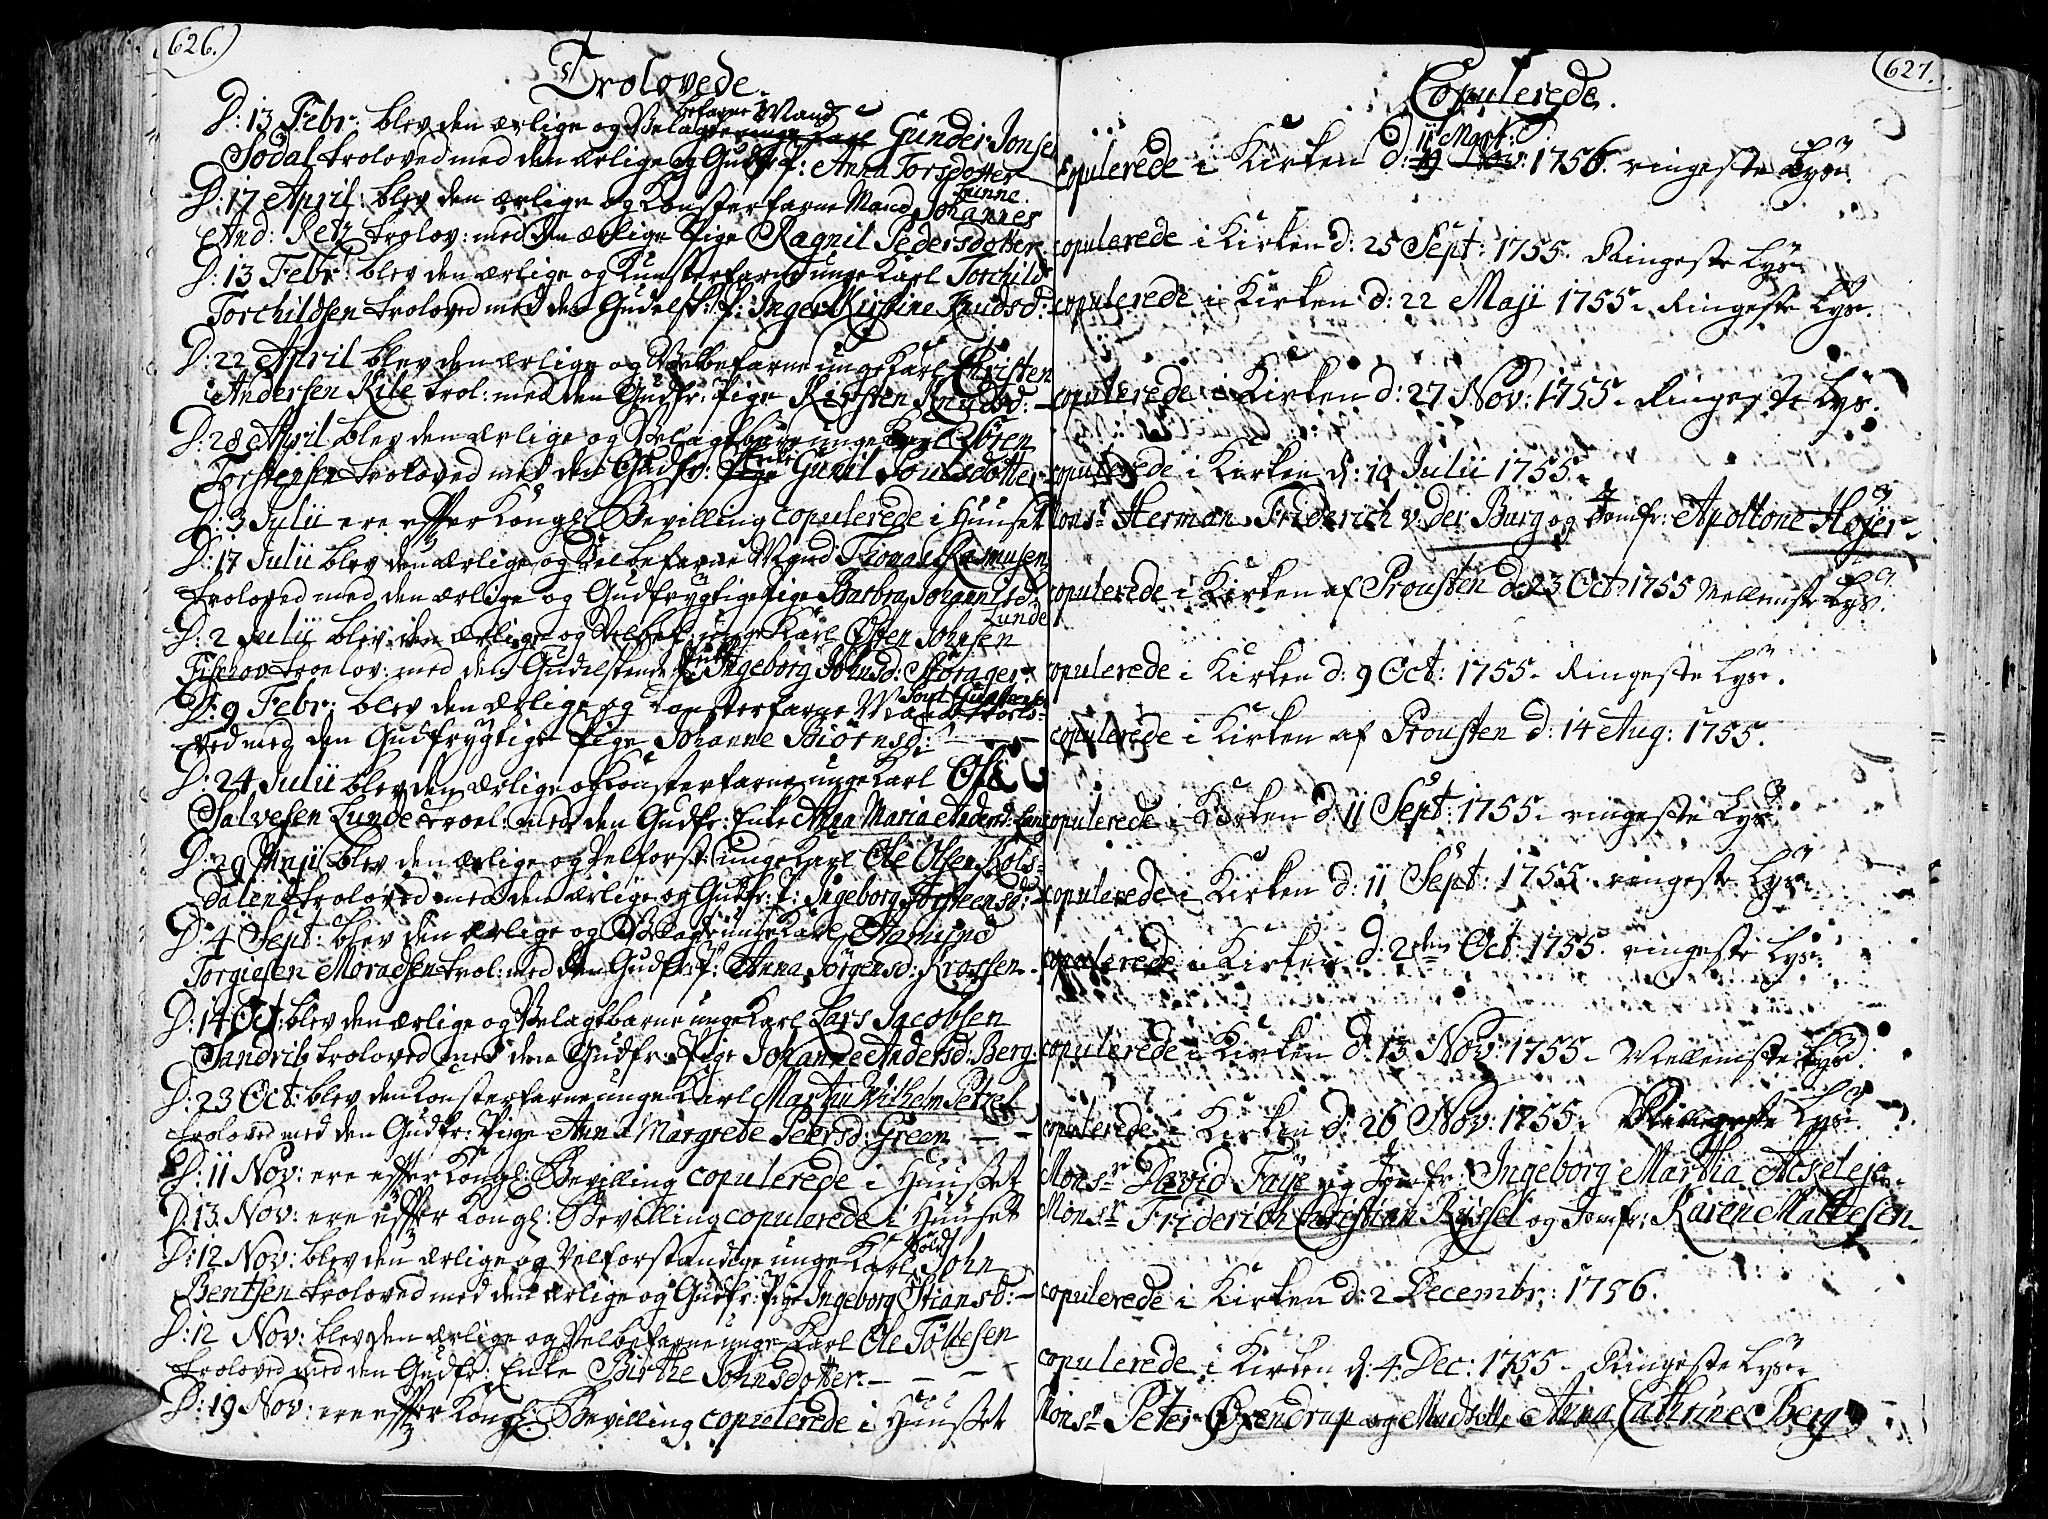 626.
Trolovede.
D: 13 Febr: blev den ærlige og Velagte unge Karl Gunder Jonsen
Sodal troloved med den ærlige og Gudfr: P: Anna Torsdotter
D: 17 April: blev den ærlige og Konsterfarne Mand Johannes
And: Retz trolov: med den ærlige Pige Ragnil Pedersdotter
D: 13 Febr: blev den ærlige og Kunsterfarne unge Karl Torchild
Torchildsen troloved med den Gudelsk: P: Inger Kirstine Knudsd:
D: 22 April blev den ærlige og Velbefarne unge Karl Christen
Andersen Kile trol: med den Gudfr: Pige Kirsten Knudsd: —
D: 28 April blev den ærlige og Velagtbare unge Karl Sören
Torstensen troloved med den Gudfr: Enke Gunil Poulsdotter
D: 3 Julii ere efter Kongl: Bevilling copulerede i Huuset
D: 17 Julii blev den ærlige og Velbefarne Mand Thomas Rasmusen
troloved med den ærlige og Gudfrygtige Pige Barbra Johanisd:
Lunde
D: 2 Julii blev den ærlige og Velbef: unge Karl Osten Johnsen
troelov: med den Gudelskende Ingeborg Johnsd: Storager
D: 9 Febr: blev den ærlige og Konsterfarne Mand
ved med den Gudfrygtige Pige Johanne Biörnsd: — —
D: 24 Julii blev den ærlige og Konsterfarne unge Karl Ole
Salvesen Lunde troel: med den Gudfr: Enke Anna Maria Andersd:
D: 29 Maji blev den ærlige og Velforst: unge Karl Ole Olsen Kols=
dalen troloved med den ærlige og Gudfr: P: Ingeborg Torsteensd:
D: 4 Sept: blev den ærlige og Velagte unge Karl Aamund
Torgiesen Moradsen trol: med den Gudfr: P: Anna Jörgensd: Krossen
D: 14 Oct: blev den ærlige og Velagtbarne unge Karl Lars Jacobsen
Sandrib troloved med den Gudfr: Pige Johanne Andersd: Berg.
D: 23 Oct: blev den Konsterfarne unge Karl Martin Wilhelm Petzel
troloved med den Gudfr: Pige Anna Margrete Petersd: Green — —
D: 11 Nov: ere efter Kongl: Bevilling copulerede i Huuset
D: 13. Nov: ere efter Kongl: Bevilling copulerede i Huuset
D: 12 Nov: blev den ærlige og Velforstandige unge Karl John
Bentsen troloved med den ærlige og Gudfr: Pige Ingeborg Stiansd: —
D: 12 Nov: blev den ærlige og Velbefarne unge Karl Ole Töllesen
troloved med den Gudfr: Enke Birthe Johnsdotter. — — —
D: 19 Nov: ere efter Kongl: Bevilling copulerede i Huuset
627.
Copulerede.
copulerede i Kirken d: 11 Mart: 1756. ringeste Lys.
copulerede i Kirken d: 25 Sept: 1755. Ringeste Lys
copulerede i Kirken d: 22 Maji 1755. Ringeste Lys.
copulerede i Kirken d: 27 Nov: 1755. Ringeste Lys.
copulerede i Kirken d: 10 Julii 1755.
Monsr Herman Friderich v. der Burg og Jomfr: Apollone Höjer
copulerede i Kirken af Prousten d: 23 Oct: 1755 Mellemste Lys.
copulerede i Kirken d: 9 Oct: 1755. Ringeste Lys.
copulerede i Kirken af Prousten d: 14 Aug: 1755.
copulerede i Kirken d: 11 Sept: 1755. ringeste Lys.
copulerede i Kirken d: 11 Sept: 1755. ringeste Lys.
copulerede i Kirken d: 2den Oct: 1755. ringeste Lys.
copulerede i Kirken d: 13 Nov: 1755. Mellemste Lys.
copulerede i Kirken d: 26 Nov: 1755. Ringeste Lys.
Monsr David Faÿe og Jomfr: Ingeborg Martha Axeleje.
Monsr Friderich Christian Kÿssel og Jomfr: Karen Mattesen
copulerede i Kirken d: 2 Decembr: 1756.
copulerede i Kirken d: 4. Dec: 1755. Ringeste Lys.
Monsr Peter Öxendrup og Madselle Anna Cathrine Berg